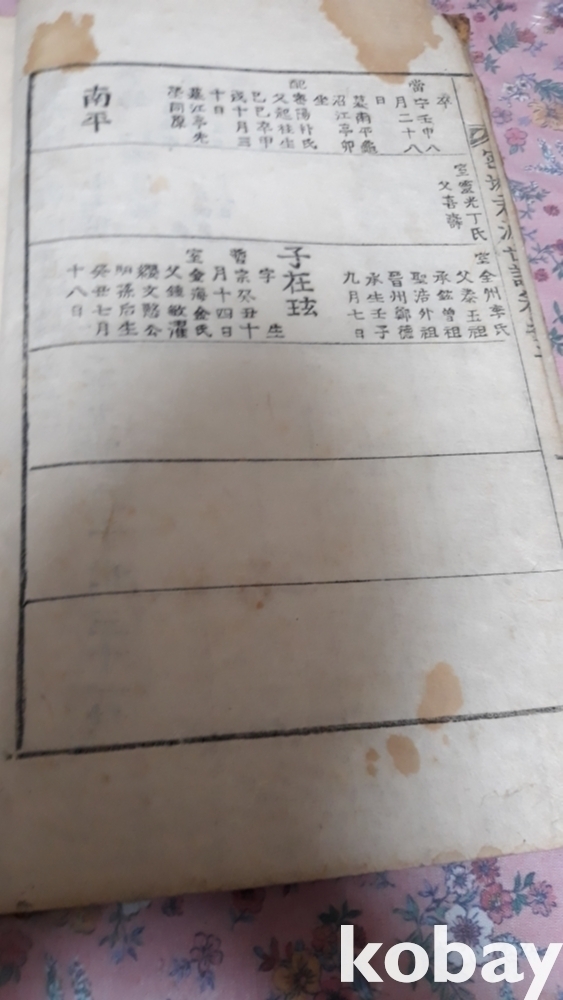 卒
當宁壬申八
月二十八
日
墓南平
沼江亭卯
坐
配密陽朴氏
父起桂生
己巳卒甲
戌十月三
十日
墓江亭先
塋同原
南平
室靈光丁氏
父喜
室全州李氏
父泰玉祖
承鉉曾祖
聖浩外祖
晉州鄭德
永生壬子
九月七日
子在玹
字　生
哲宗癸丑十
月十四日
室金海金氏
父鍾敏濯
纓文愍公
馹孫后生
癸丑七月
十八日
kobay